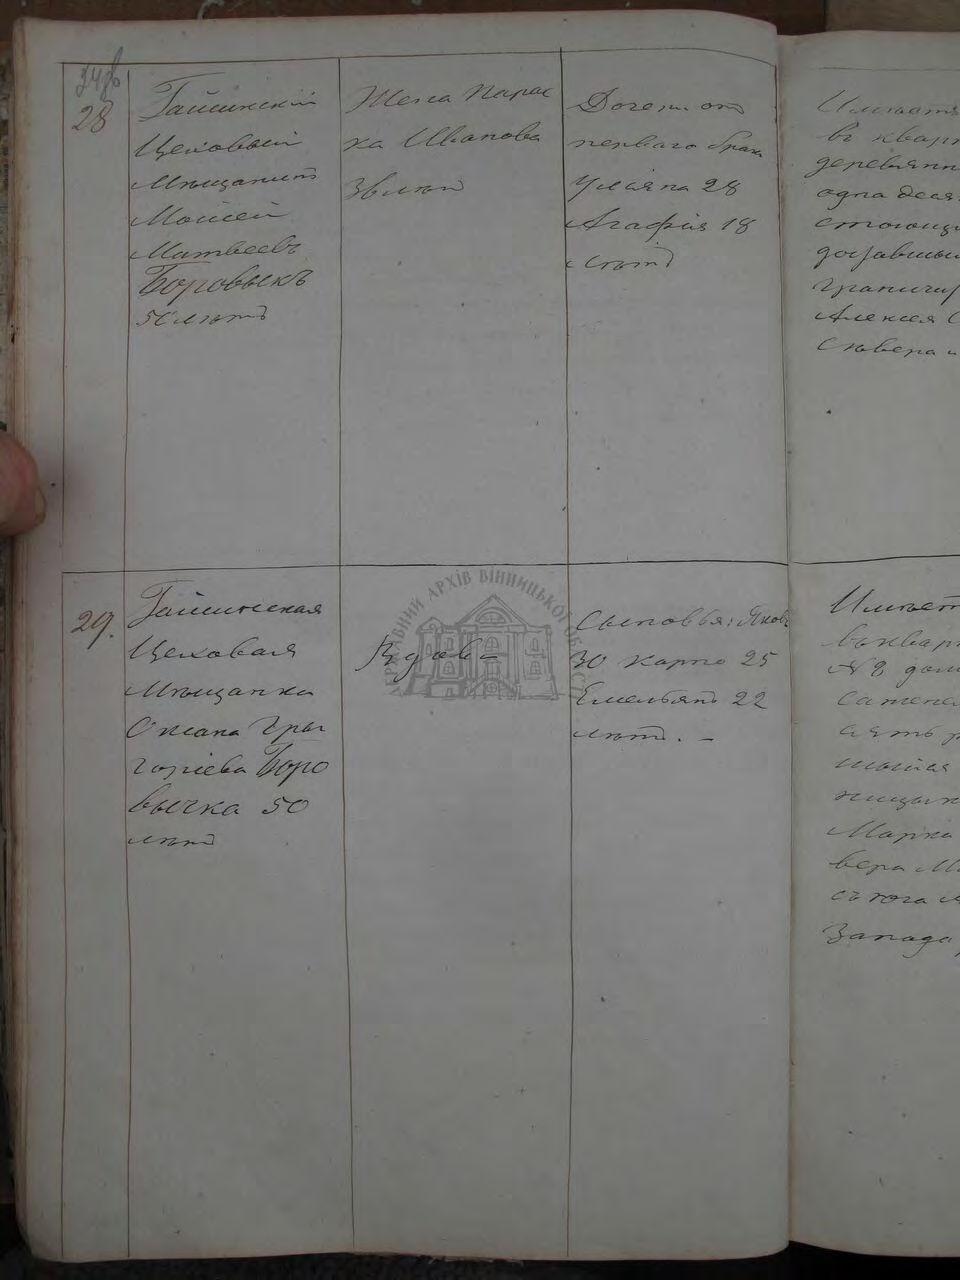 28
Гайсинскій
Цеховый
Мѣщанинъ
Мойсей
Матвеевъ
Боровыкъ
50 лѣтъ
Жена Парас
ка Иванова
лѣтъ
Дочери отъ
перваго брака
Уліяна 28
Агафія 18
лѣтъ
Имѣетъ
въ кварт
деревянн
одна деся
стоющи
граничи
Алексея С
Сѣвера и
29.
Гайсинская
Цеховая
Мѣщанка
Оксана Гры
горіева Боро
вычка 50
лѣтъ
Вдова –
Сыновья: Яковъ
30 Карпо 25
Емельянъ 22
лѣтъ. –
Имѣет
въ кварт
№ 2 дом
сажена
ницы
Марка
вера М
съ юга
Запада
ДЕРЖАВНИЙ АРХІВ ВІННИЦЬКОЇ ОБЛАСТІ